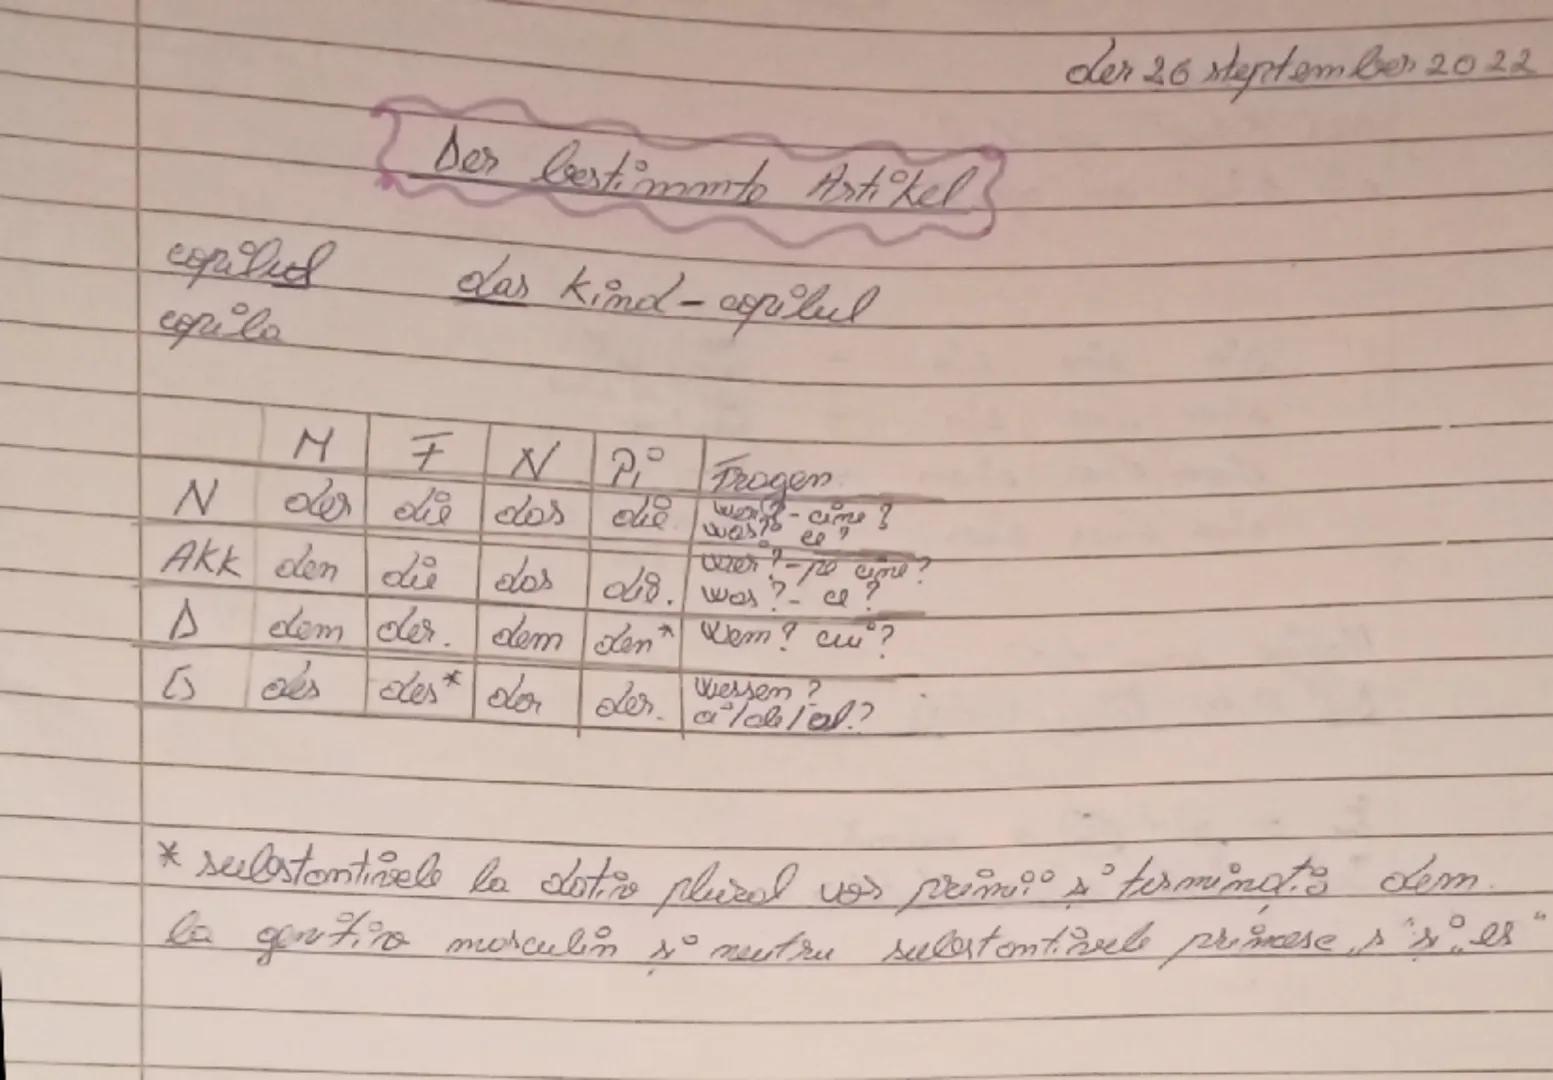 der 26 september 2022
Der bestimmte Artikel
copilul das Kind - copilul
copila
M F N Pl Fragen
N der die das die wer? - cine?
was? ce?
AKK den die das die. wer? - pe cine?
was? - ce?
D dem der. dem den* Wem? cui?
G des des* der der. Wessen?
a/ale/al?
* substantivele la dativ plural vor primii și terminația dem.
la genitiv masculin și neutru substantivele primesc „s și es"